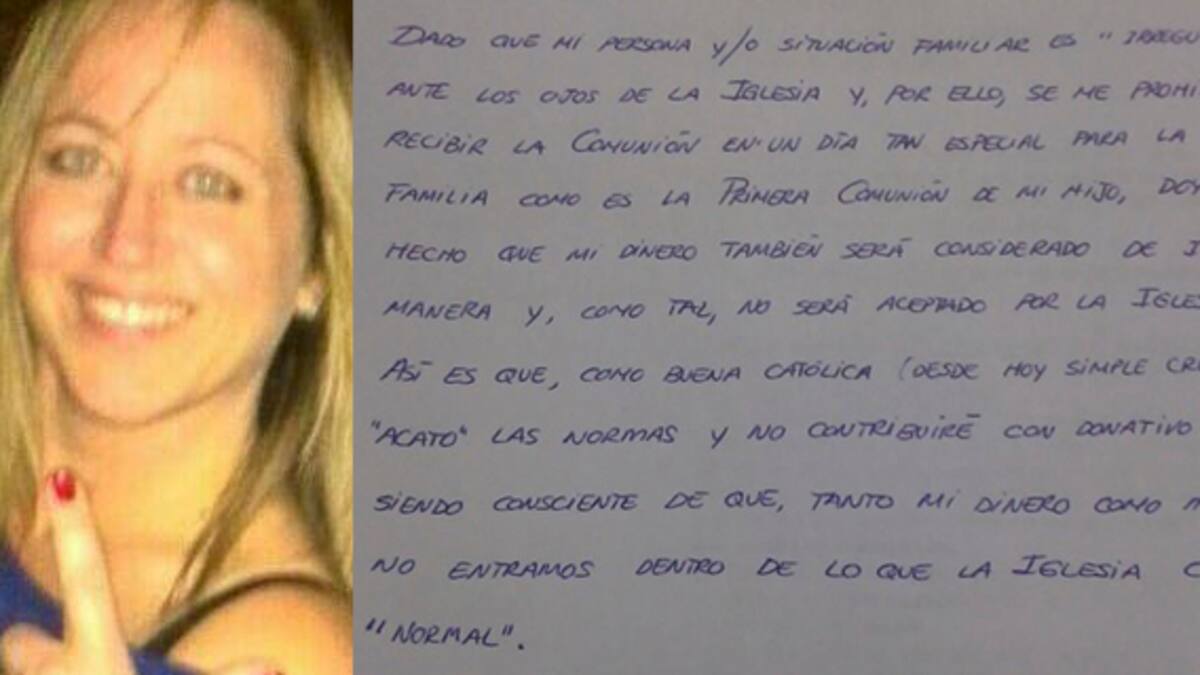 DADO QUE MI PERSONA Y/O SITUACIÓN FAMILIAR ES "IRREGU
ANTE LOS OJOS DE LA IGLESIA Y, POR ELLO, SE ME PROHI
RECIBIR LA COMUNIÓN EN UN DÍA TAN ESPECIAL PARA LA
FAMILIA COMO ES LA PRIMERA COMUNIÓN DE MI HIJO, DOY
HECHO QUE MI DINERO TAMBIÉN SERÁ CONSIDERADO DE I
MANERA Y, COMO TAL, NO SERÁ ACEPTADO POR LA IGLES
ASÍ ES QUE, COMO BUENA CATÓLICA (DESDE HOY SIMPLE CR
"ACATO" LAS NORMAS Y NO CONTRIBUIRÉ CON DONATIVO
SIENDO CONSCIENTE DE QUE, TANTO MI DINERO COMO
NO ENTRAMOS DENTRO DE LO QUE LA IGLESIA C
"NORMAL".